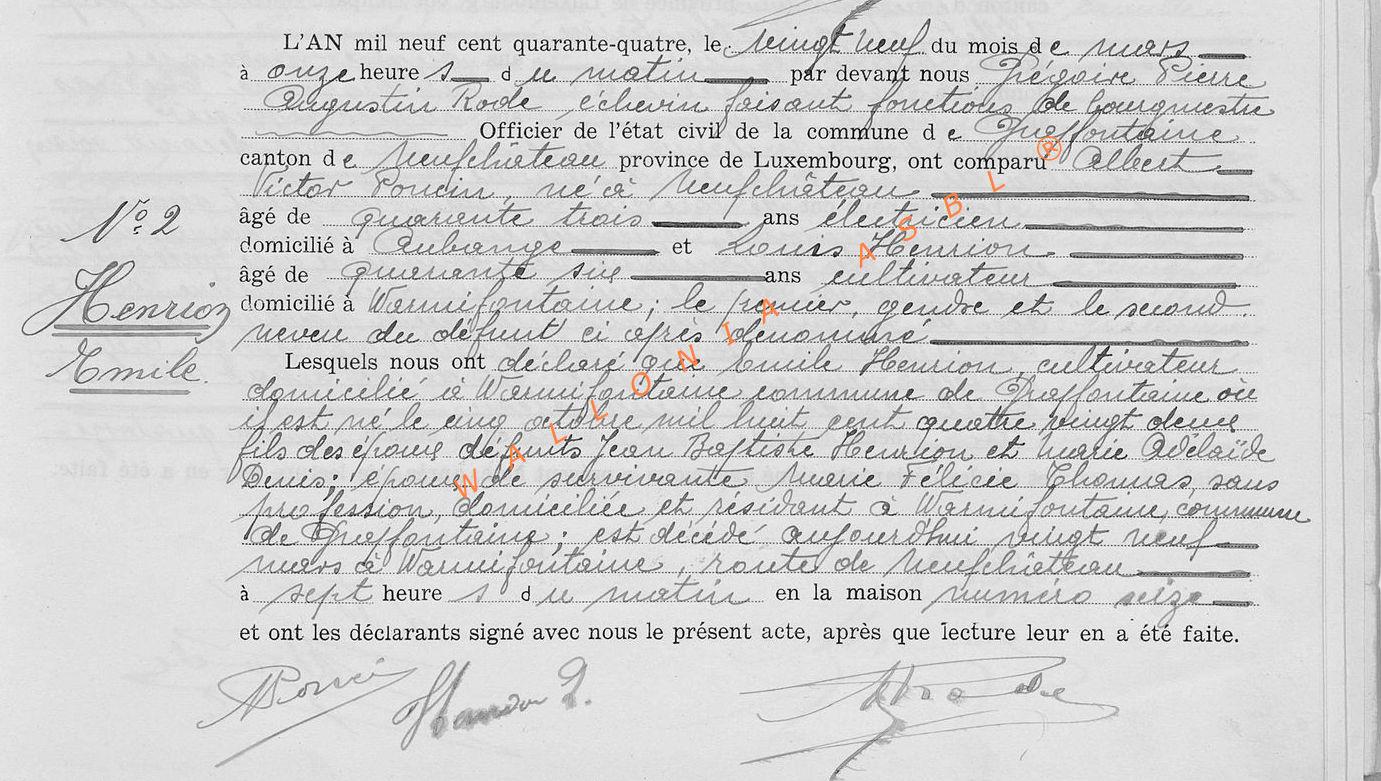 L'AN mil neuf cent quarante-quatre, le vingt neuf du mois de mars
à onze heures du matin par devant nous Grégoire Pierre
Augustin Rode échevin faisant fonctions de bourgmestre
Officier de l'état civil de la commune de Graffontaine
canton de Neufchâteau province de Luxembourg, ont comparu Albert
Victor Poncin, né à Neufchâteau
âgé de quarante trois ans électricien
domicilié à Aubange et Louis Henrion
âgé de quarante six ans cultivateur
domicilié à Warmifontaine; le premier, gendre et le second
neveu du défunt ci après dénommé
Lesquels nous ont déclaré que Emile Henrion, cultivateur
domicilié à Warmifontaine commune de Graffontaine où
il est né le cinq octobre mil huit cent quatre vingt deux
fils des époux défunts Jean Baptiste Henrion et Marie Adélaïde
Denis; époux de survivante Marie Félicie Thomas, sans
profession, domiciliée et résidant à Warmifontaine, commune
de Graffontaine; est décédé aujourd'hui vingt neuf
mars à Warmifontaine, route de Neufchâteau
à sept heures du matin en la maison numéro seize
et ont les déclarants signé avec nous le présent acte, après que lecture leur en a été faite.
No 2
Henrion
Emile.
WALLONIA ASBL ®